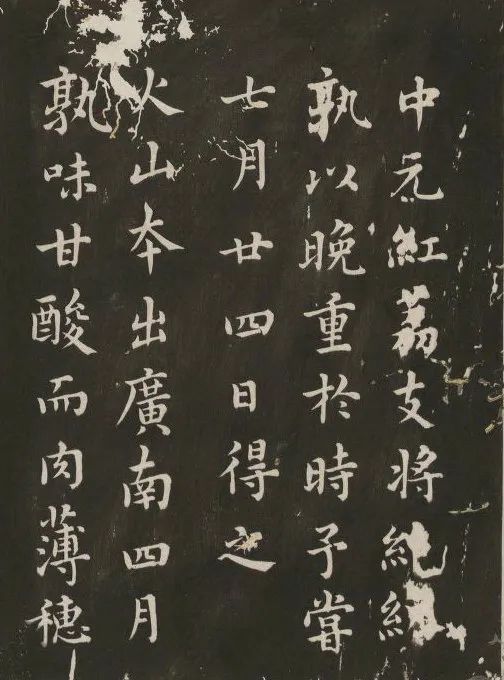 中元紅荔支将絕
孰以晚重於時予嘗
七月廿四日得之
火山本出廣南四月
孰味甘酸而肉薄穗